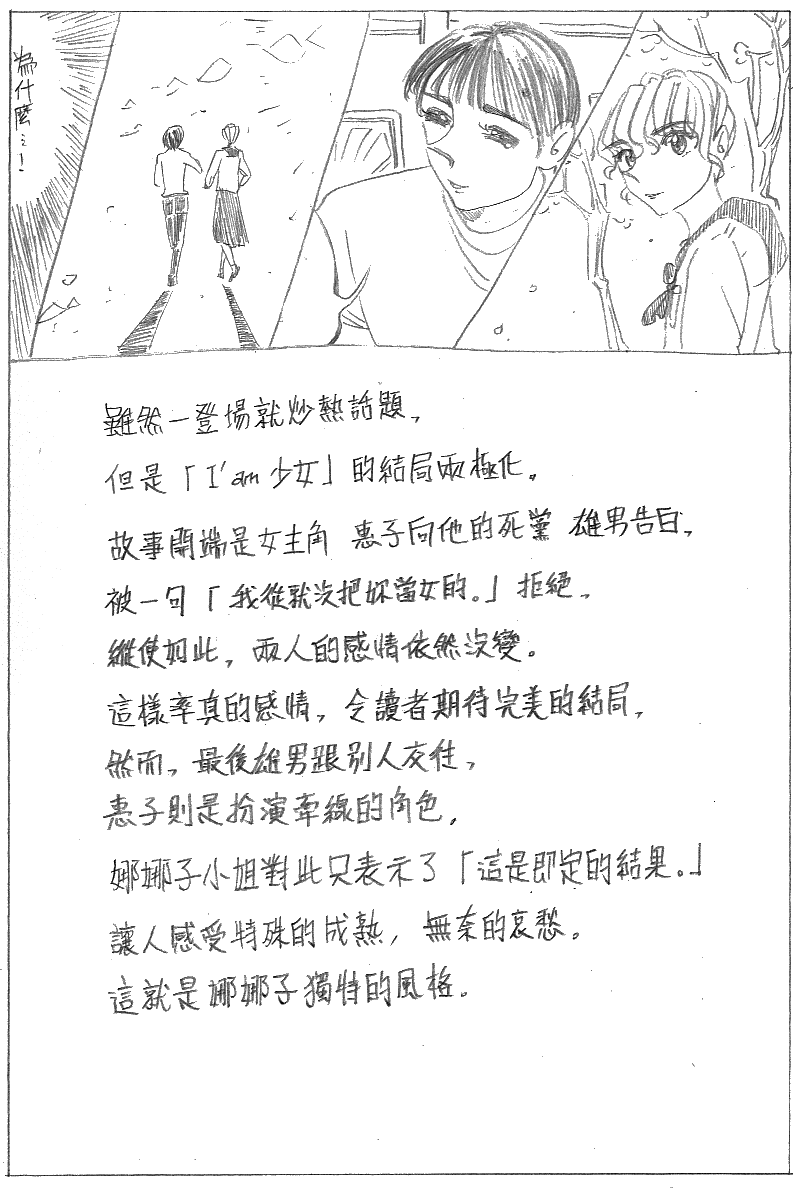 為什麼…!
雖然一登場就炒熱話題,
但是「I'am少女」的結局兩極化。
故事開端是女主角 惠子向他的死黨 雄男告白,
被一句「我從就沒把妳當女的。」拒絕,
縱使如此,兩人的感情依然沒變。
這樣率真的感情,令讀者期待完美的結局,
然而,最後雄男跟別人交往,
惠子則是扮演牽線的角色,
娜娜子小姐對此只表示了「這是即定的結果。」
讓人感受特殊的成熟,無奈的哀愁。
這就是娜娜子獨特的風格。